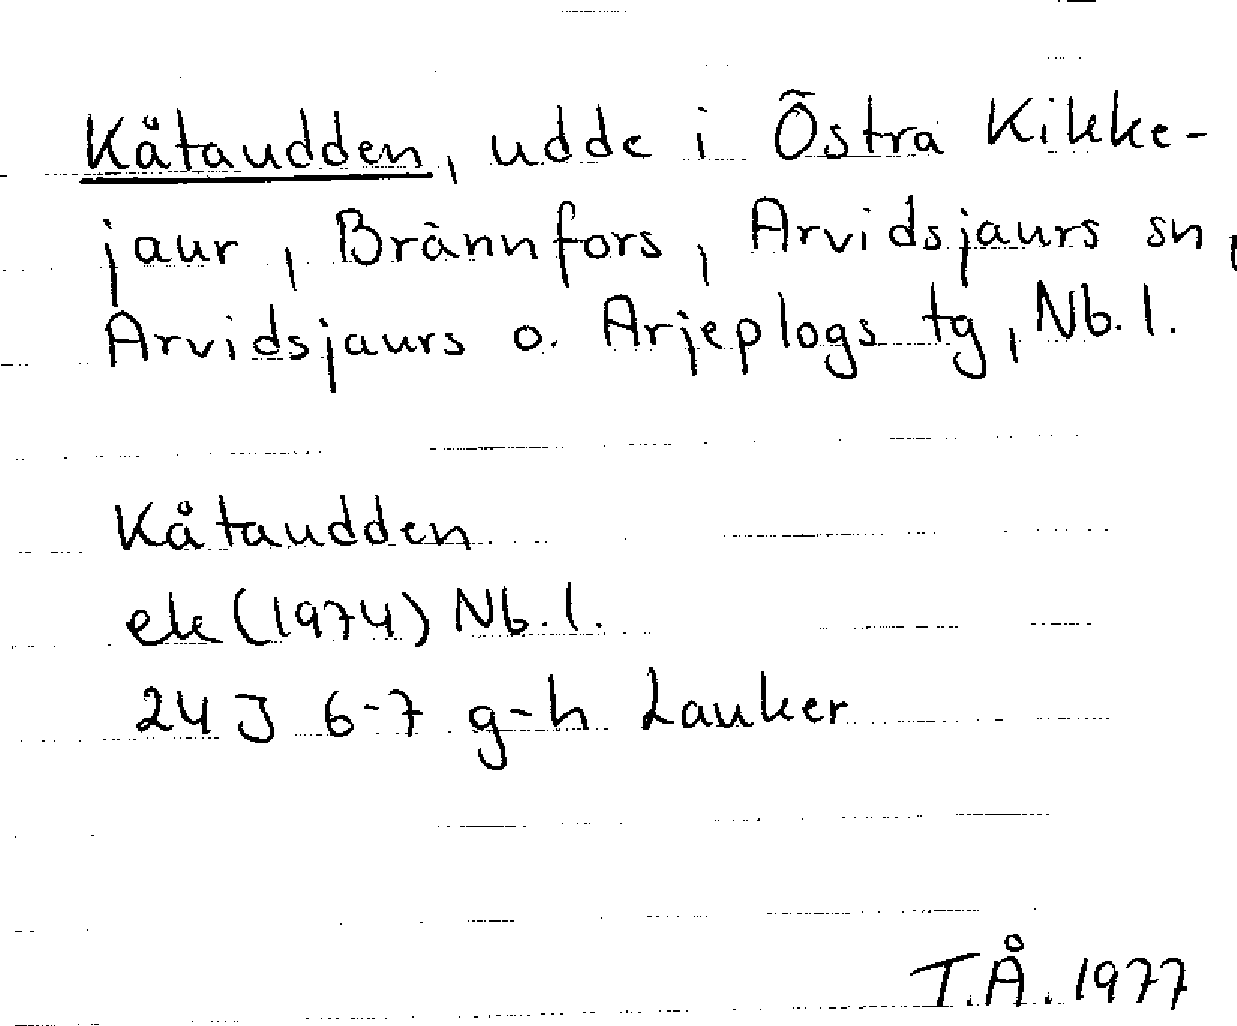 Kåtaudden, udde i Östra Kikke-
jaur, Brännfors, Arvidsjaurs sn,
Arvidsjaurs o. Arjeplogs tg, Nb. l.
Kåtaudden
ek (1974) Nb. l.
24 J 6-7 g-h Lauker
T.Å. 1977